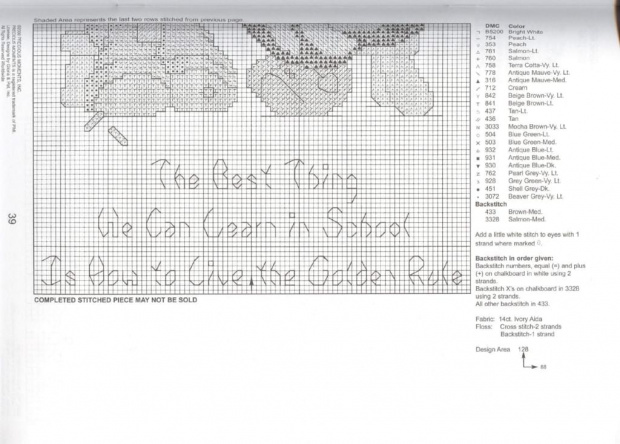 Shaded Area represents the last two rows stitched from previous page.
The Best Thing
We Can Learn in School
Is How to Live the Golden Rule
COMPLETED STITCHED PIECE MAY NOT BE SOLD
39
DMC Color
B5200 Bright White
754 Peach-Lt.
353 Peach
761 Salmon-Lt.
760 Salmon
758 Terra Cotta-Vy. Lt.
778 Antique Mauve-Vy. Lt.
316 Antique Mauve-Med.
712 Cream
842 Beige Brown-Vy. Lt.
841 Beige Brown-Lt.
437 Tan-Lt.
436 Tan
3033 Mocha Brown-Vy. Lt.
504 Blue Green-Lt.
503 Blue Green-Med.
932 Antique Blue-Lt.
931 Antique Blue-Med.
930 Antique Blue-Dk.
762 Pearl Grey-Vy. Lt.
928 Grey Green-Vy. Lt.
451 Shell Grey-Dk.
3072 Beaver Grey-Vy. Lt.
Backstitch
433 Brown-Med.
3328 Salmon-Med.
Add a little white stitch to eyes with 1
strand where marked
Backstitch in order given:
Backstitch numbers, equal (=) and plus
(+) on chalkboard in white using 2
strands.
Backstitch X's on chalkboard in 3328
using 2 strands.
All other backstitch in 433.
Fabric: 14ct. Ivory Aida
Floss: Cross stitch-2 strands
Backstitch-1 strand
Design Area 128
88